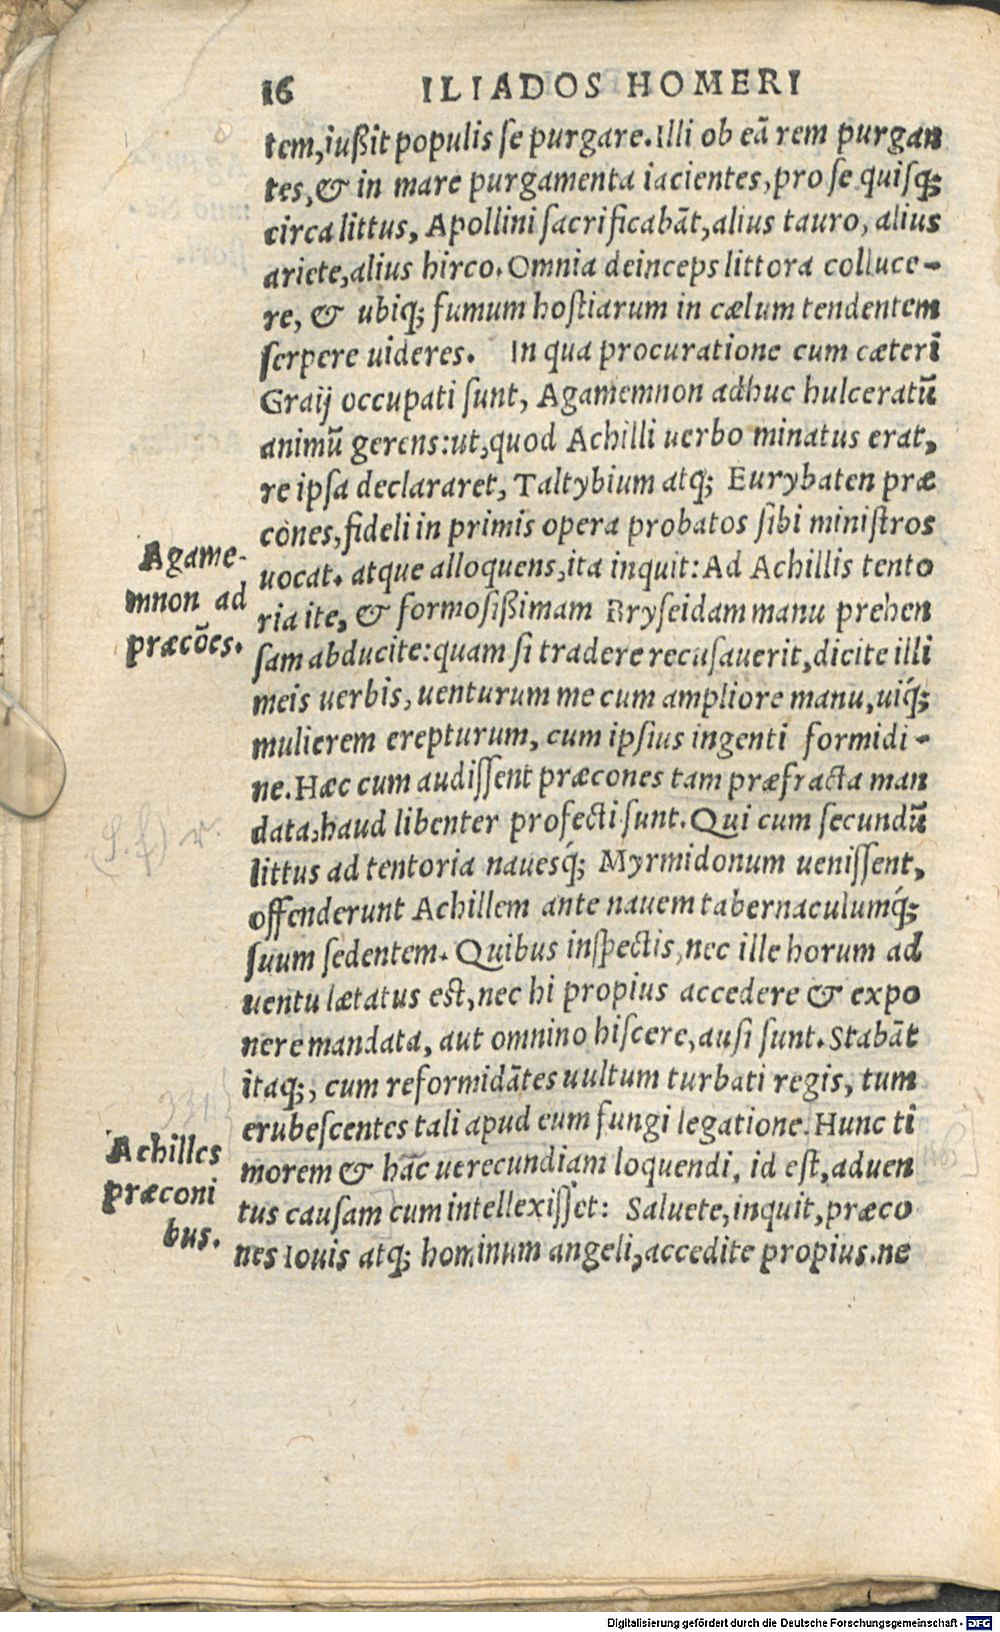 16 ILIADOS HOMERI
tem,iußit populis se purgare.Illi ob eā rem purgan
tes,& in mare purgamenta iacientes,pro se quisq;
circa littus, Apollini sacrificabāt,alius tauro, alius
ariete,alius hirco.Omnia deinceps littora colluce-
re, & ubiq; fumum hostiarum in cælum tendentem
serpere uideres. In qua procuratione cum cæteri
Graij occupati sunt, Agamemnon adhuc hulceratū
animū gerens:ut,quod Achilli uerbo minatus erat,
re ipsa declararet, Taltybium atq; Eurybaten præ
cones,fideli in primis opera probatos sibi ministros
uocat. atque alloquens,ita inquit:Ad Achillis tento
Agame-
mnon ad
præcōes.
ria ite, & formosißimam Bryseidam manu prehen
sam abducite:quam si tradere recusauerit,dicite illi
meis uerbis, uenturum me cum ampliore manu,uiq́;
mulierem erepturum, cum ipsius ingenti formidi-
ne.Hæc cum audissent præcones tam præfracta man
data,haud libenter profecti sunt.Qui cum secundū
littus ad tentoria nauesq́; Myrmidonum uenissent,
offenderunt Achillem ante nauem tabernaculumq́;
suum sedentem. Quibus inspectis,nec ille horum ad
uentu lætatus est,nec hi propius accedere & expo
nere mandata, aut omnino hiscere,ausi sunt.Stabāt
itaq;, cum reformidātes uultum turbati regis, tum
331
erubescentes tali apud eum fungi legatione.Hunc ti
Achilles
præconi
bus.
morem & hāc uerecundiam loquendi, id est,aduen
tus causam cum intellexisset: Saluete,inquit,præco
nes Iouis atq; hominum angeli,accedite propius.ne
Digitalisierung gefördert durch die Deutsche Forschungsgemeinschaft - DFG